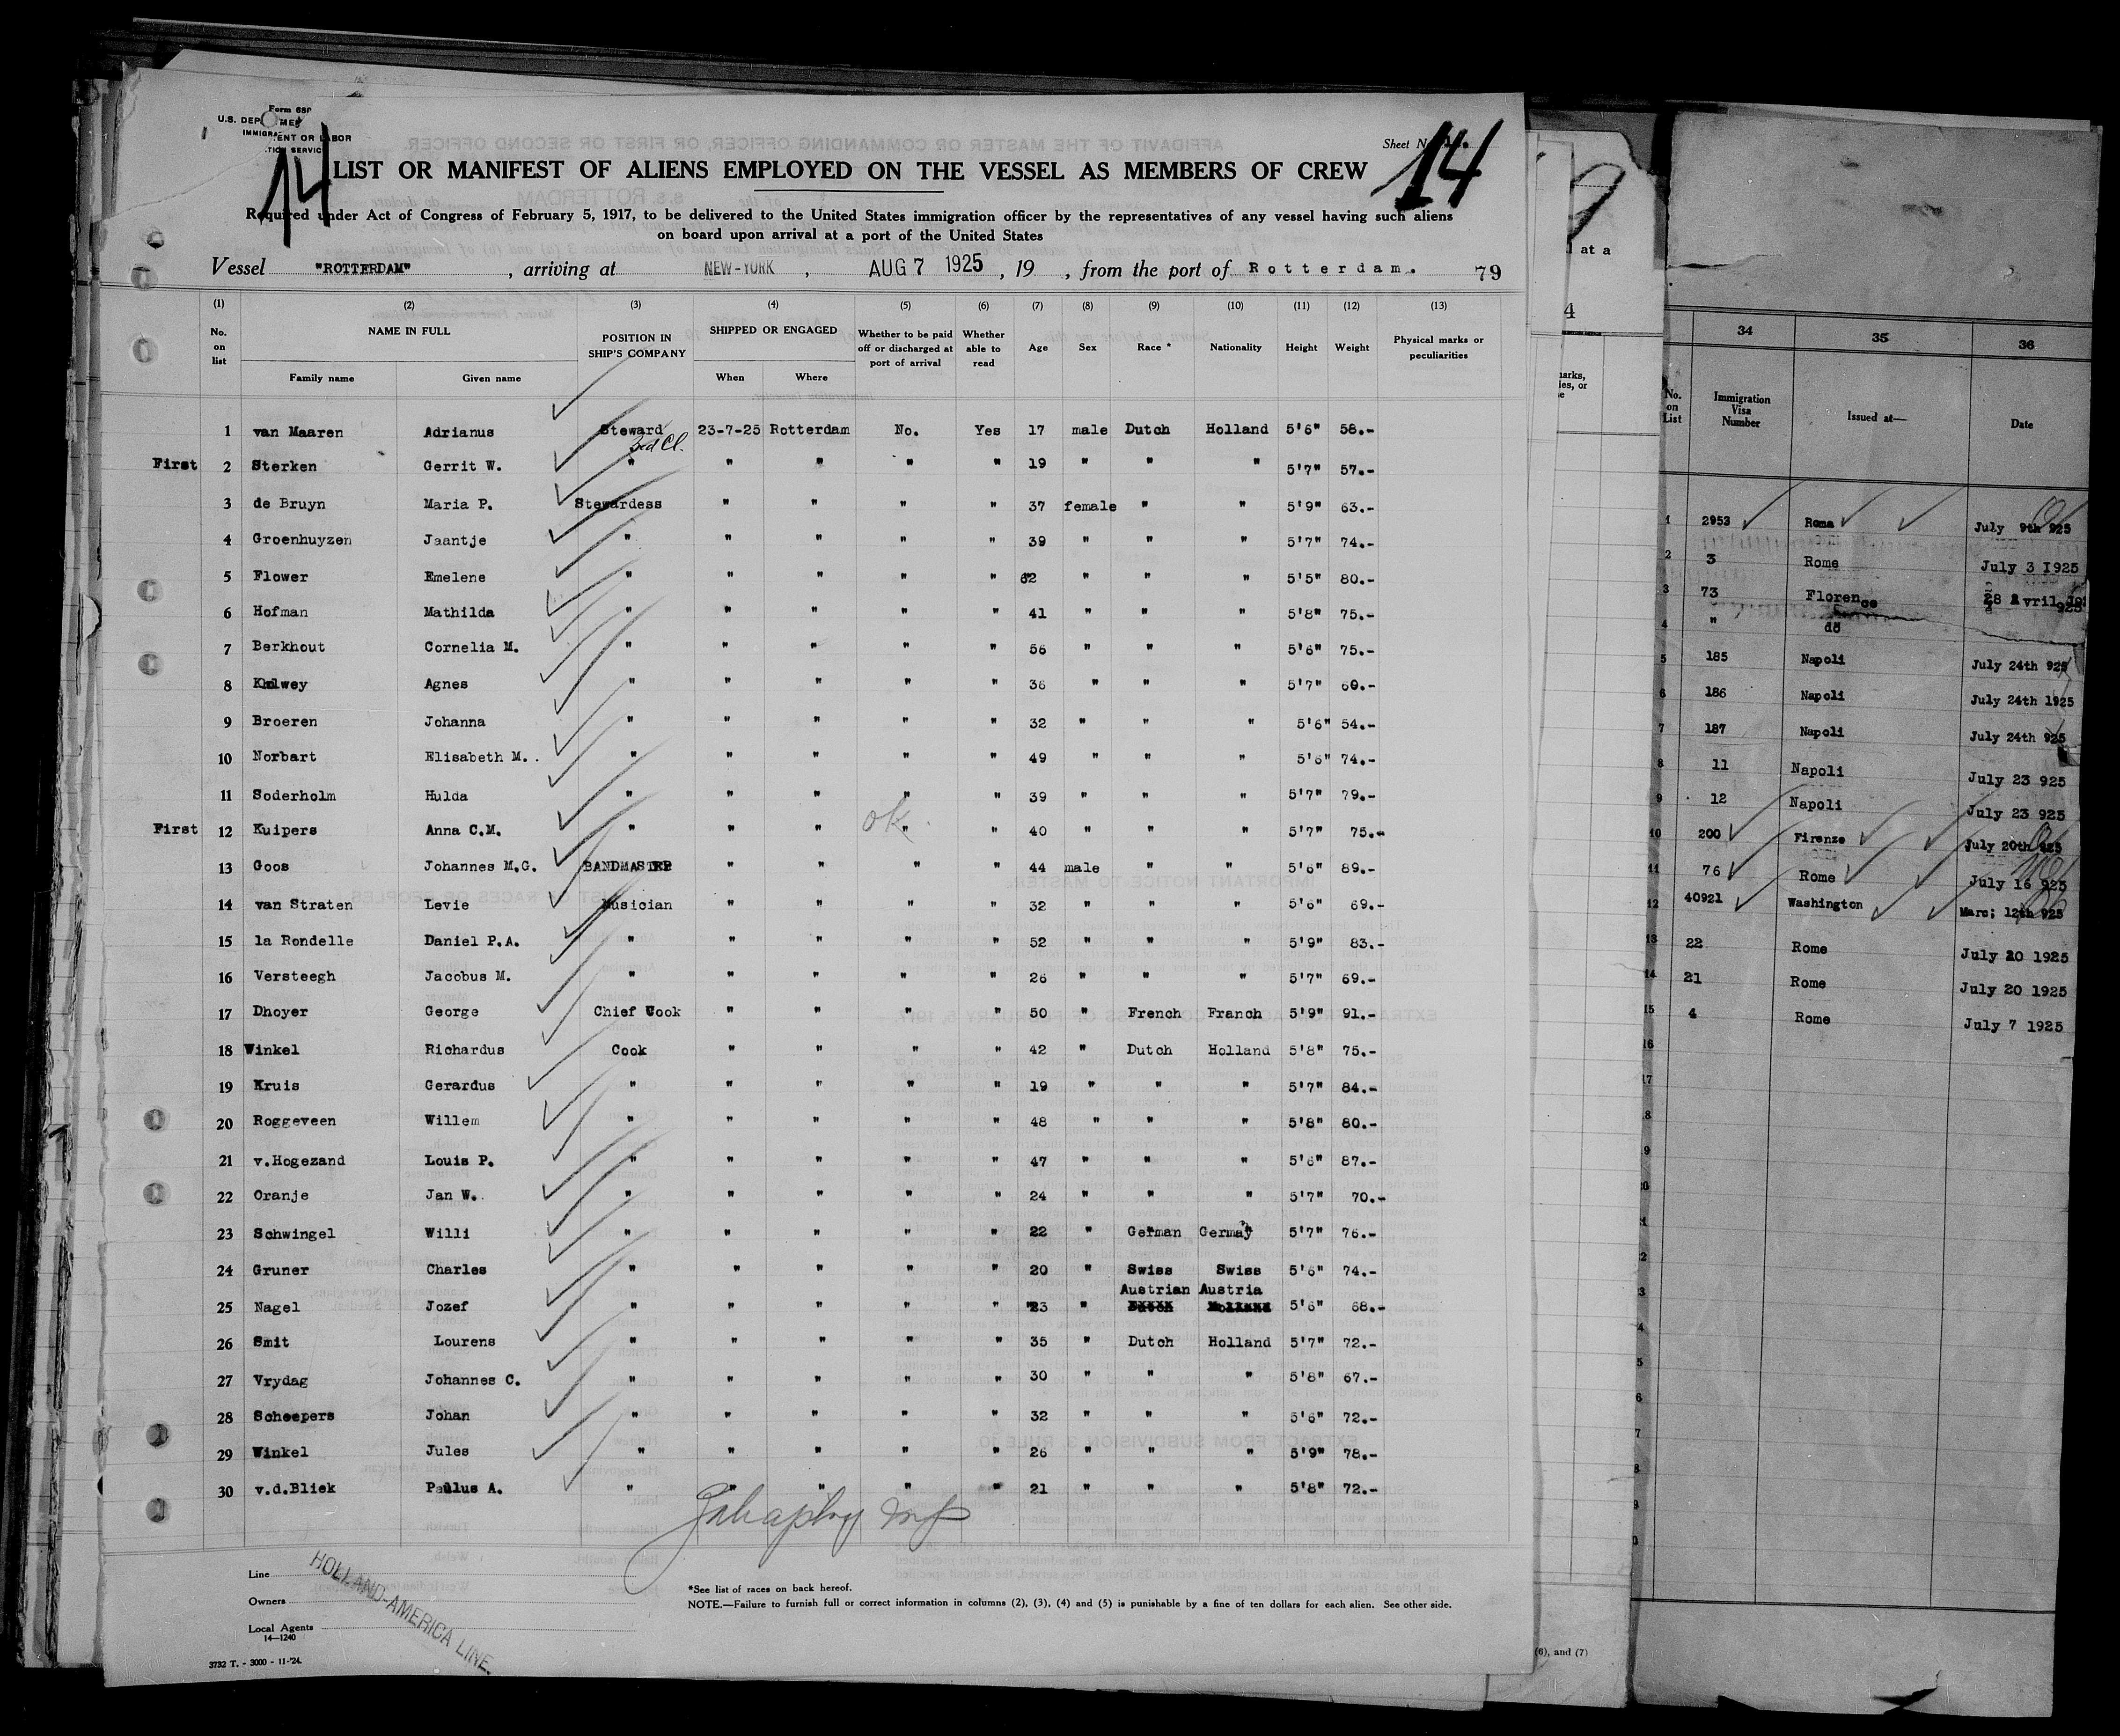 Form 68
U.S. DEP MEN
IMMIGRA ENT OR LABOR
TION SERVIC
14
Sheet N
14
LIST OR MANIFEST OF ALIENS EMPLOYED ON THE VESSEL AS MEMBERS OF CREW
Required under Act of Congress of February 5, 1917, to be delivered to the United States immigration officer by the representatives of any vessel having such aliens
on board upon arrival at a port of the United States
Vessel "ROTTERDAM" , arriving at NEW-YORK , AUG 7 1925 , 19 , from the port of Rotterdam. 79
(1) (2) (3) (4) (5) (6) (7) (8) (9) (10) (11) (12) (13)
No. on list NAME IN FULL POSITION IN SHIP'S COMPANY SHIPPED OR ENGAGED Whether to be paid off or discharged at port of arrival Whether able to read Age Sex Race * Nationality Height Weight Physical marks or peculiarities
Family name Given name When Where
1 van Maaren Adrianus Steward 23-7-25 Rotterdam No. Yes 17 male Dutch Holland 5'6" 58.-
3rd Cl.
First 2 Sterken Gerrit W. " " " " " 19 " " " 5'7" 57.-
3 de Bruyn Maria P. Stewardess " " " " 37 female " " 5'9" 63.-
4 Groenhuyzen Jaantje " " " " " 39 " " " 5'7" 74.-
5 Flower Emelene " " " " " 62 " " " 5'5" 80.-
6 Hofman Mathilda " " " " " 41 " " " 5'8" 75.-
7 Berkhout Cornelia M. " " " " " 56 " " " 5'6" 75.-
8 Agnes " " " " " 36 " " " 5'7" 60.-
9 Broeren Johanna " " " " " 32 " " " 5'6" 54.-
10 Norbart Elisabeth M. . " " " " " 49 " " " 5'6" 74.-
11 Soderholm Hulda " " " " " 39 " " " 5'7" 79.-
ok
First 12 Kuipers Anna C.M. " " " " " 40 " " " 5'7" 75.-
13 Goos Johannes M.G. BANDMASTER " " " " 44 male " " 5'6" 89.-
14 van Straten Levie Musician " " " " 32 " " " 5'6" 69.-
15 la Rondelle Daniel P.A. " " " " " 52 " " " 5'9" 83.-
16 Versteegh Jacobus M. " " " " " 26 " " " 5'7" 69.-
17 Dhoyer George Chief Cook " " " " 50 " French Franch 5'9" 91.-
18 Winkel Richardus Cook " " " " 42 " Dutch Holland 5'8" 75.-
19 Kruis Gerardus " " " " " 19 " " " 5'7" 84.-
20 Roggeveen Willem " " " " " 48 " " " 5'8" 80.-
21 v.Hogezand Louis P. " " " " " 47 " " " 5'6" 87.-
22 Oranje Jan W. " " " " " 24 " " " 5'7" 70.-
23 Schwingel Willi " " " " " 22 " German Germay 5'7" 76.-
24 Gruner Charles " " " " " 20 " Swiss Swiss 5'6" 74.-
Austrian Austria
25 Nagel Jozef " " " " " 23 " Dutch Holland 5'6" 68.-
26 Smit Lourens " " " " " 35 " Dutch Holland 5'7" 72.-
27 Vrydag Johannes C. " " " " " 30 " " " 5'8" 67.-
28 Scheepers Johan " " " " " 32 " " " 5'6" 72.-
29 Winkel Jules " " " " " 26 " " " 5'9" 78.-
30 v.d.Bliek Paulus A. " " " " " 21 " " " 5'8" 72.-
Line
Owners
Local Agents
HOLLAND-AMERICA LINE.
14—1240
3732 T. - 3000 - 11-'24.
*See list of races on back hereof.
NOTE.—Failure to furnish full or correct information in columns (2), (3), (4) and (5) is punishable by a fine of ten dollars for each alien. See other side.
at a
4
marks,
ies, or
(6), and (7)
34 35 36
No. on List Immigration Visa Number Issued at— Date
1 2953 Roma July 9th 925
2 3 Rome July 3 1925
3 73 Florence 28 Avril 925
4 " do
5 185 Napoli July 24th 925
6 186 Napoli July 24th 1925
7 187 Napoli July 24th 925
8 11 Napoli July 23 925
9 12 Napoli July 23 925
10 200 Firenze July 20th 925
11 76 Rome July 16 925
12 40921 Washington Marc; 12th 925
13 22 Rome July 20 1925
14 21 Rome July 20 1925
15 4 Rome July 7 1925
16
17